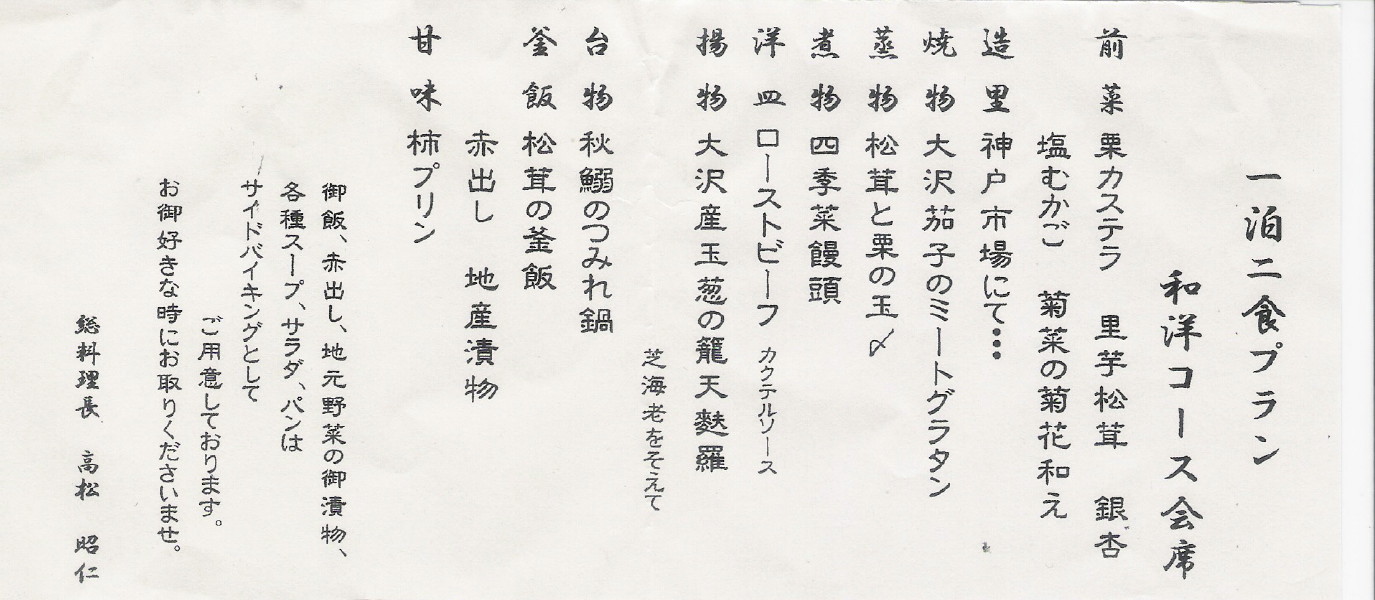 一泊二食プラン
和洋コース会席
前菜 栗カステラ 里芋松茸 銀杏
塩むかご 菊菜の菊花和え
造里 神戸市場にて・・・
焼物 大沢茄子のミートグラタン
蒸物 松茸と栗の玉〆
煮物 四季菜饅頭
洋皿 ローストビーフ カクテルソース
揚物 大沢産玉葱の籠天麩羅
芝海老をそえて
台物 秋鰯のつみれ鍋
釜飯 松茸の釜飯
赤出し 地産漬物
甘味 柿プリン
御飯、赤出し、地元野菜の御漬物、
各種スープ、サラダ、パンは
サイドバイキングとして
ご用意しております。
お御好きな時にお取りくださいませ。
総料理長 高松 昭仁